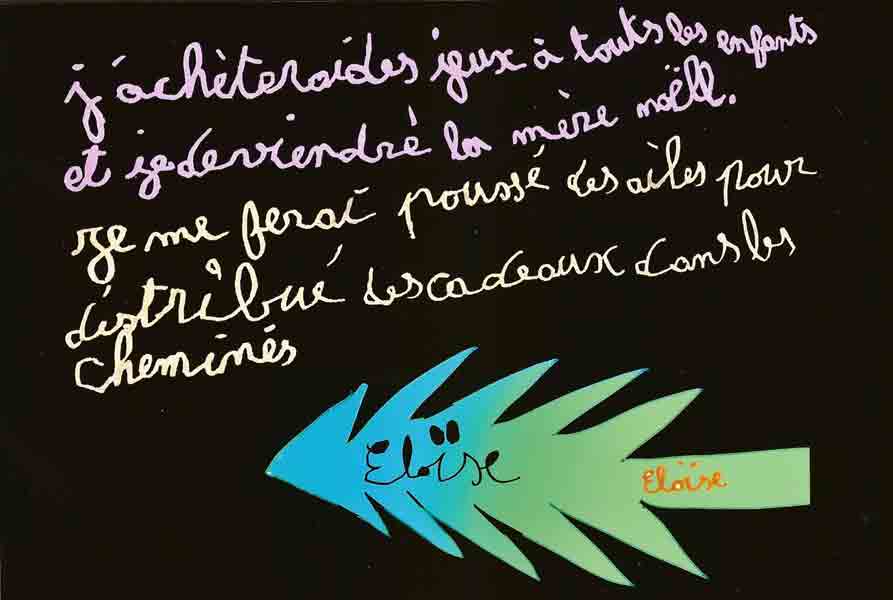 j'achèteraides jeux à touts les enfants
et je deviendrè la mère noëll.
je me ferai poussé des ailes pour
distribué des cadeaux dans les
cheminés
Eloïse
Eloïse